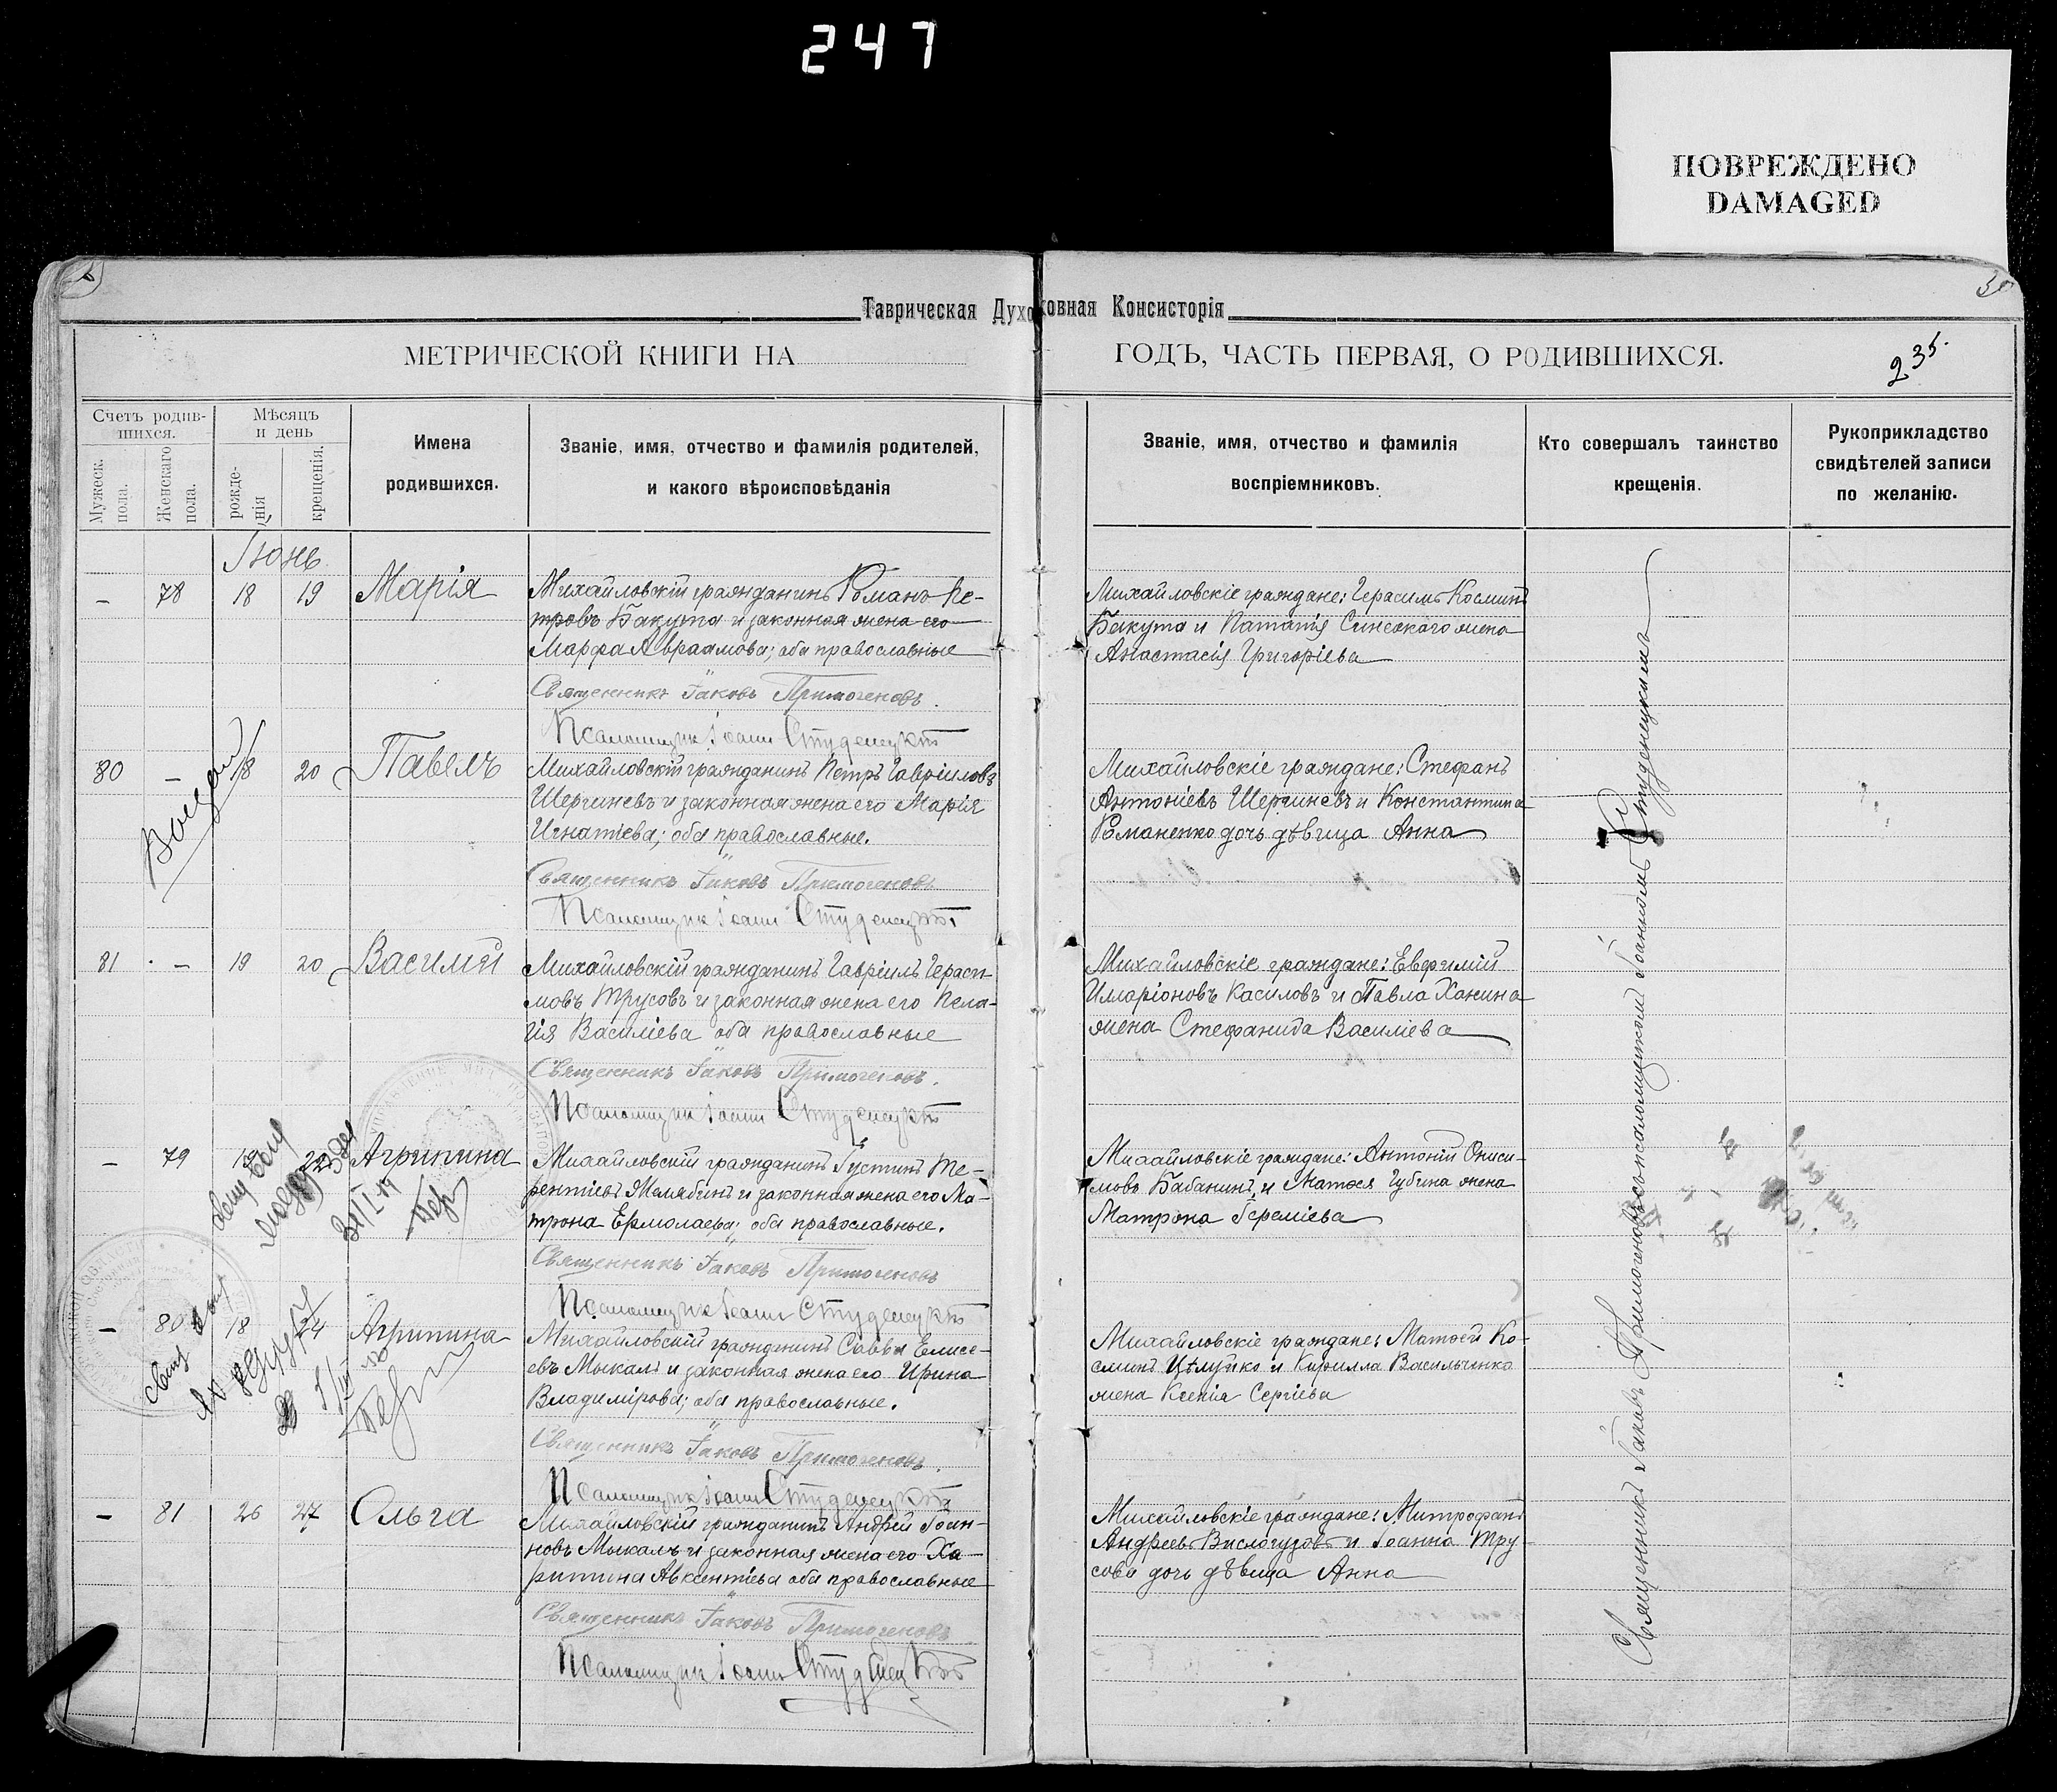 247
ПОВРЕЖДЕНО
DAMAGED
Таврическая Духовная Консисторія
МЕТРИЧЕСКОЙ КНИГИ НА
ГОДЪ, ЧАСТЬ ПЕРВАЯ, О РОДИВШИХСЯ.
235.
Счетъ родив-
шихся.
Мужеск.
пола.
Женскаго
пола.
Мѣсяцъ
и день
рожде-
нія
крещенія.
Имена
родившихся.
Званіе, имя, отчество и фамилія родителей,
и какого вѣроисповѣданія
Званіе, имя, отчество и фамилія
воспріемниковъ.
Кто совершалъ таинство
крещенія.
Рукоприкладство
свидѣтелей записи
по желанію.
Іюнь
– 78 18 19 Марія
Михайловскій гражданинъ Романъ Пе-
тровъ Бакута и законная жена его
Марфа Авраамова; оба православные
Священникъ Іаковъ Примогеновъ.
Псаломщикъ Іоаннъ Студенецкій
Михайловскіе граждане: Герасимъ Косминъ
Бакута и жена
Анастасія Григоріева
80 – 18 20 Павелъ
Михайловскій гражданинъ Петръ Гавріиловъ
Шергиневъ и законная жена его Марія
Игнатіева; оба православные.
Священникъ Іаковъ Примогеновъ
Псаломщикъ Іоаннъ Студенецкій
Михайловскіе граждане: Стефанъ
Антоніевъ Шергиневъ и Константина
Романенко дочь дѣвица Анна
81 – 19 20 Василій
Михайловскій гражданинъ Гавріилъ Гераси-
мовъ Трусовъ и законная жена его Пела-
гія Василіева оба православные
Священникъ Іаковъ Примогеновъ.
Псаломщикъ Іоаннъ Студенецкій
Михайловскіе граждане: Евфимій
Илларіоновъ Касиловъ и Павла Ханина
жена Стефанида Василіева
– 79 Агрипина
Михайловскій гражданинъ Іустинъ Те-
рентіевъ и законная жена его Ма-
трона Ермолаева; оба православные.
Священникъ Іаковъ Примогеновъ
Псаломщикъ Іоаннъ Студенецкій
Михайловскіе граждане: Антоній Ониси-
мовъ Бабанинъ и Матѳея Губина жена
Матрона Іереміева
– 80 18 24 Агрипина
Михайловскій гражданинъ Савва Елисе-
евъ Мыкалъ и законная жена его Ирина
Владимірова; оба православные.
Священникъ Іаковъ Примогеновъ.
Псаломщикъ Іоаннъ Студенецкій
Михайловскіе граждане: Матѳей Ко-
сминъ Цѣлуйко и Кирилла Васильченко
жена Ксенія Сергіева
– 81 26 27 Ольга
Михайловскій гражданинъ Андрей Іоан-
новъ Мыкалъ и законная жена его Ха-
ритина Авксентіева оба православные
Священникъ Іаковъ Примогеновъ
Псаломщикъ Іоаннъ Студенецкій
Михайловскіе граждане: Митрофанъ
Андреевъ Вислогузовъ и Іоанна Тру
сова дочь дѣвица Анна
Священникъ Іаковъ Примогеновъ съ псаломщикомъ Іоанномъ Студенецкимъ